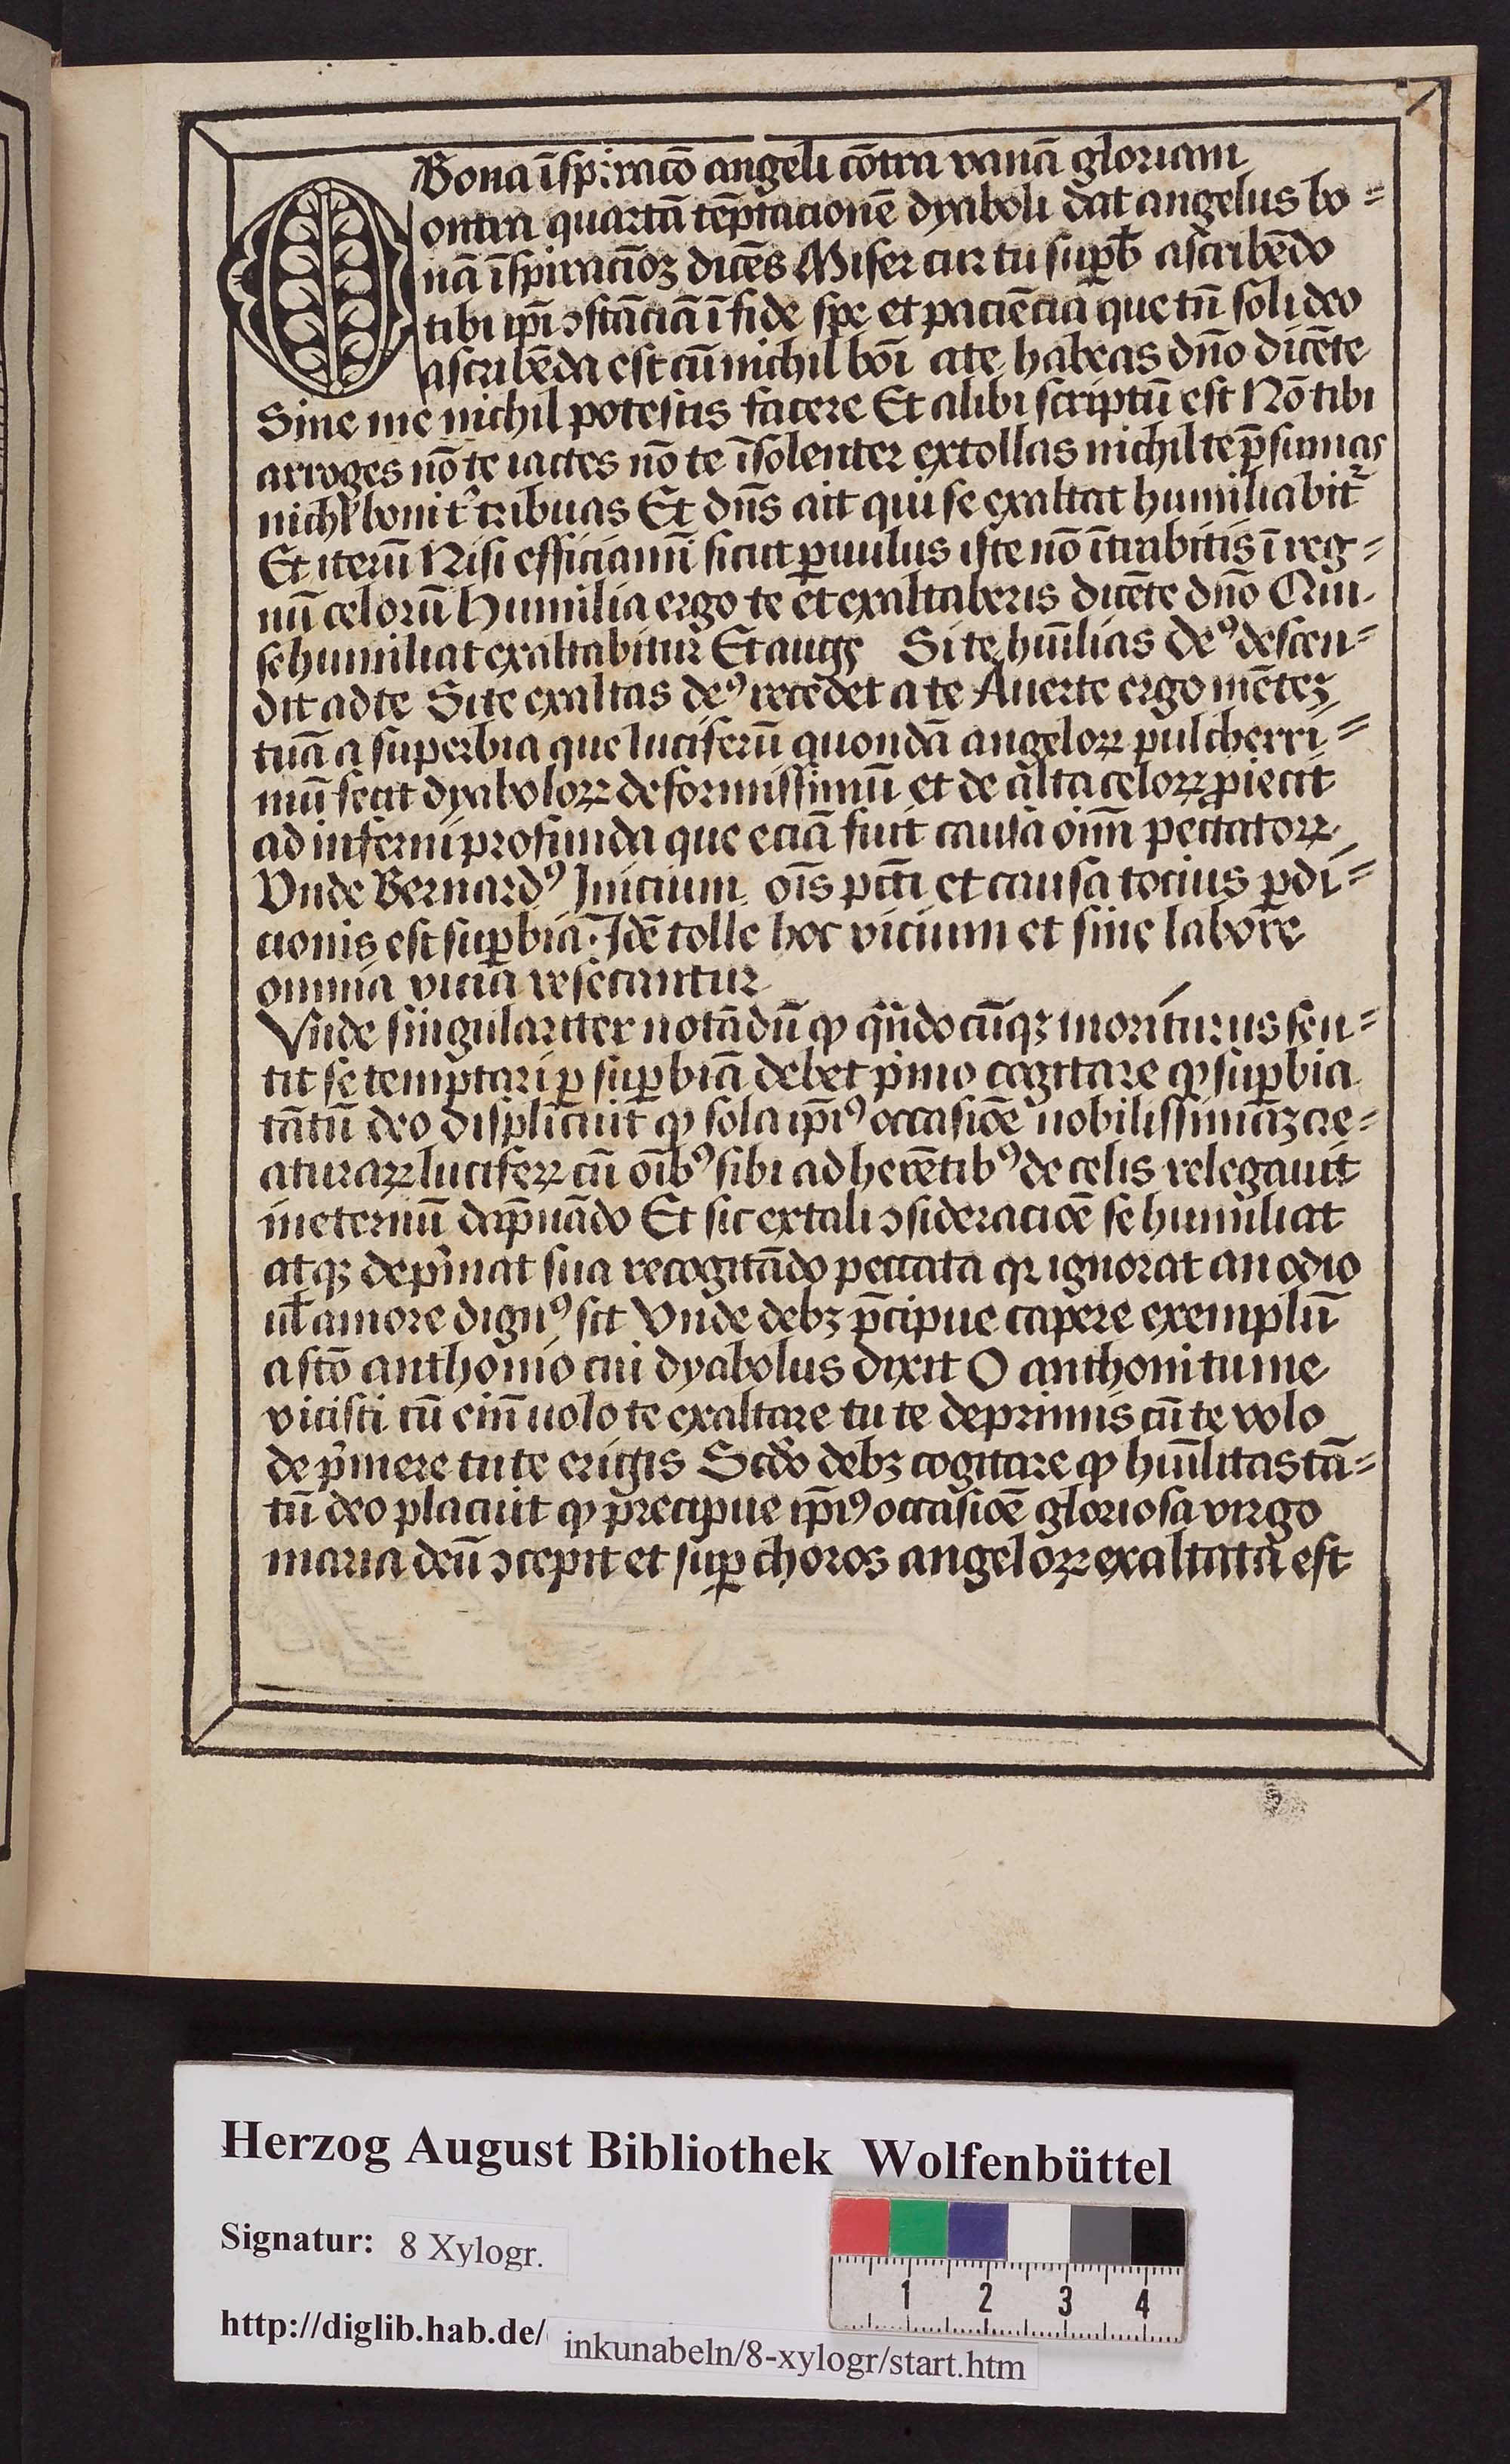 Bona īspiracō angeli cōtra vanā gloriam
Contra quartā tēptacionē dyaboli dat angelus bo=
nā īspiracioꝫ dicēs Miser cur tu supꝑb ascribēdo
tibi ipī ꝯstāciā ī fide spe et paciēcia que tn̄ soli deo
ascribēda est cū nichil boī a te habeas dn̄o dicēte
Sine me nichil potestis facere Et alibi scriptū est Nō tibi
arroges nō te iactes nō te īsolenter extollas nichil te p̄sumas
nichil boni t' tribuas Et dn̄s ait qui se exaltat humiliabit᷑
Et iterū Nisi efficiamī sicut ꝑuulus iste nō ītrabitis ī reg=
nū celorū Humilia ergo te et exaltaberis dicēte dn̄o Qui
se humiliat exaltabitur Et augꝰ Si te hūilias deꝰ descen=
dit ad te Si te exaltas deꝰ recedet a te Auerte ergo mēteꝫ
tuā a superbia que luciferū quondā angeloꝝ pulcherri=
mū fecit dyaboloꝝ deformissimū et de alta celoꝝ ꝓiecit
ad inferni profunda que eciā fuit causa oīm peccatoꝝ
Vnde Bernardꝰ Inicium oīs pcc̄i et causa tocius ꝑdi=
cionis est suꝑbia. Idē tolle hoc vicium et sine labore
omnia vicia resecantur
Vnde singulariter notādū ꝙ qn̄docūqꝫ moriturus sen=
tit se temptari ꝑ suꝑbiā debet p̓mo cogitare ꝙ suꝑbia
tātū deo displicuit ꝙ sola ipīꝰ occasiōe nobilissimāꝫ cre=
aturaꝝ luciferꝝ cū oībꝰ sibi adherētibꝰ de celis relegauit
ineternū dāpnādo Et sic ex tali ꝯsideraciōe se humiliat
atqꝫ dep̓mat sua recogitādo peccata qꝛ ignorat an odio
ul̄ amore dignꝰ sit Vnde debꝫ p̄cipue capere exemplū
a sc̄o anthonio cui dyabolus dixit O anthoni tu me
vicisti cū eīn uolo te exaltare tu te deprimis cū te volo
dep̓mere tu te erigis Scd̄o debꝫ cogitare ꝙ hūilitas tā=
tū deo placuit ꝙ precipue ipīꝰ occasiōe gloriosa virgo
maria deū ꝯcepit et suꝑ choros angeloꝝ exaltata est
Herzog August Bibliothek Wolfenbüttel
Signatur: 8 Xylogr.
1 2 3 4
http://diglib.hab.de/ inkunabeln/8-xylogr/start.htm